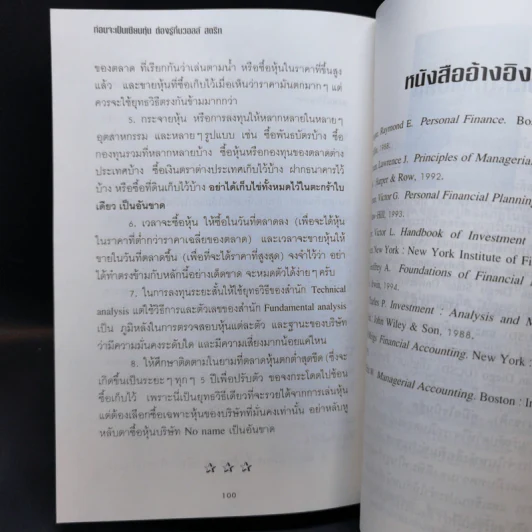 ก่อนจะเป็นเซียนหุ้น ต้องรู้ทันวอลล์ สตรีท
ของตลาด ที่เรียกกันว่าเล่นตามน้ำ หรือซื้อหุ้นในราคาที่ขึ้นสูง
แล้ว และขายหุ้นที่ซื้อเก็บไว้เมื่อเห็นว่าราคามันตกมากๆ แต่
ควรจะใช้ยุทธวิธีตรงกันข้ามมากกว่า
5. กระจายหุ้น หรือการลงทุนให้หลากหลายในหลายๆ
อุตสาหกรรม และหลายๆ รูปแบบ เช่น ซื้อพันธบัตรบ้าง ซื้อ
กองทุนรวมที่หลากหลายบ้าง ซื้อหุ้นหรือกองทุนของตลาดต่าง
ประเทศบ้าง ซื้อเงินตราต่างประเทศเก็บไว้บ้าง ฝากธนาคารไว้
บ้าง หรือซื้อที่ดินเก็บไว้บ้าง อย่าได้เก็บไข่ทั้งหมดไว้ในตะกร้าใบ
เดียว เป็นอันขาด
6. เวลาจะซื้อหุ้น ให้ซื้อในวันที่ตลาดลง (เพื่อจะได้หุ้น
ในราคาที่ต่ำกว่าราคาเฉลี่ยของตลาด) และเวลาจะขายหุ้นให้
ขายในวันที่ตลาดขึ้น (เพื่อที่จะได้ราคาที่สูงสุด) จงจำไว้ว่า อย่า
ได้ทำตรงข้ามกับหลักนี้อย่างเด็ดขาด จะหมดตัวได้ง่ายๆ ครับ
7. ในการลงทุนระยะสั้นให้ใช้ยุทธวิธีของสำนัก Technical
analysis แต่ใช้วิธีการและตัวเลขของสำนัก Fundamental analysis
เป็น ภูมิหลังในการตรวจสอบหุ้นแต่ละตัว และฐานะของบริษัท
ว่ามีความมั่นคงระดับใด และมีความเสี่ยงมากน้อยแค่ไหน
8. ให้ศึกษาติดตามในยามที่ตลาดหุ้นตกต่ำสุดขีด (ซึ่งจะ
เกิดขึ้นเป็นระยะๆ ทุกๆ 5 ปีเพื่อปรับตัว ขอจงกระโดดไปช้อน
ซื้อเก็บไว้ เพราะนี่เป็นยุทธวิธีเดียวที่จะรวยได้จากการเล่นหุ้น
แต่ต้องเลือกซื้อเฉพาะหุ้นของบริษัทที่มั่นคงเท่านั้น อย่าหลับหู
หลับตาซื้อหุ้นบริษัท No name เป็นอันขาด
100
หนังสืออ้างอิง
Raymond E. Personal Finance. Bos
1988.
Lawrence J. Principles of Managerial
Harper & Row, 1992.
Victor G. Personal Financial Planning
Hill, 1993.
Victor L. Handbook of Investment
New York : New York Institute of Fi
Foundations of Financial
1994.
P. Investment : Analysis and M
John Wiley & Son, 1988.
Financial Accounting. New York :
Managerial Accounting. Boston : In